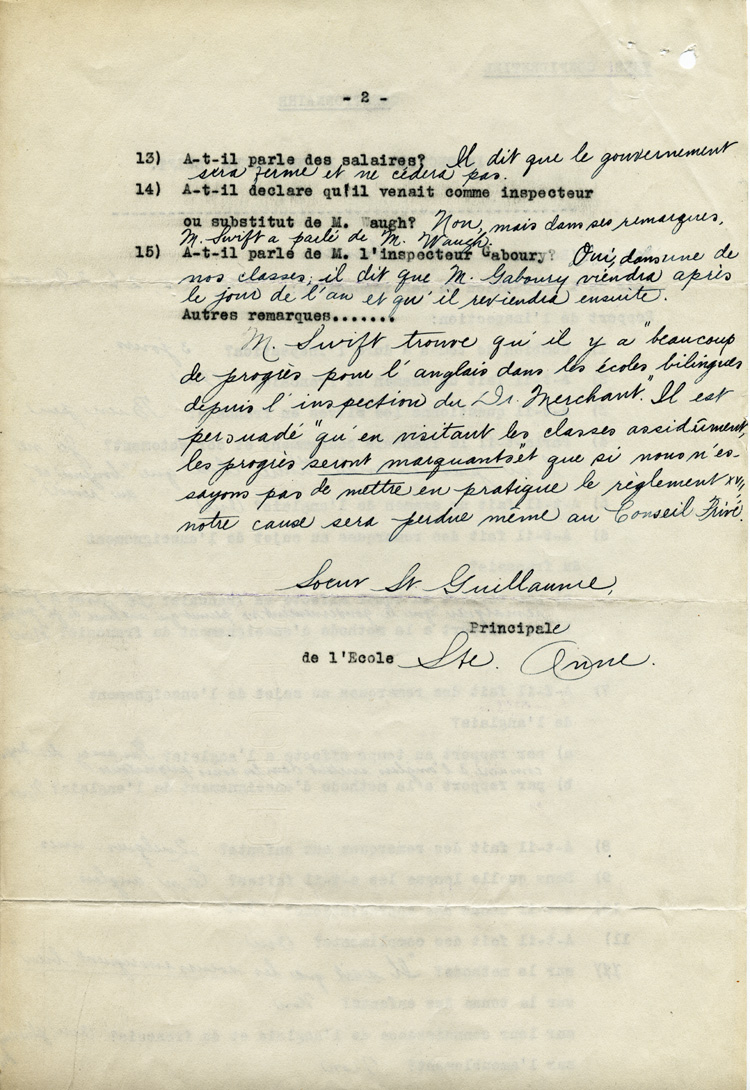 - 2 -
13) A-t-il parle des salaires? Il dit que le gouvernement
sera ferme et ne cédera pas.
14) A-t-il declare qu'il venait comme inspecteur
ou substitut de M. Waugh? Non, mais dans ses remarques,
M. Swift a parlé de M. Waugh.
15) A-t-il parle de M. l'inspecteur Gaboury? Oui, dans une de
nos classes; il dit que M. Gaboury viendra après
le jour de l'an et qu'il reviendra ensuite.
Autres remarques.......
M. Swift trouve qu'il y a "beaucoup
de progrès pour l'anglais dans les écoles bilingues
depuis l'inspection du Dr. Merchant." Il est
persuadé "qu'en visitant les classes assidûment,
les progrès seront marquants" et que si nous n'es-
sayons pas de mettre en pratique le règlement XVII,
notre cause sera perdue même au Conseil Privé.
Soeur St Guillaume,
Principale
de l'Ecole Ste. Anne.